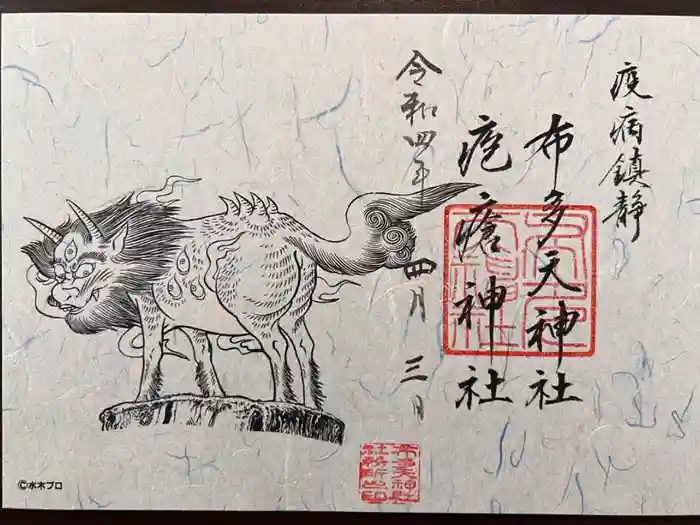 疫病鎮静
布多天神社
疱瘡神社
令和四年 四月 三日
布多天神社
社務所之印
©水木プロ